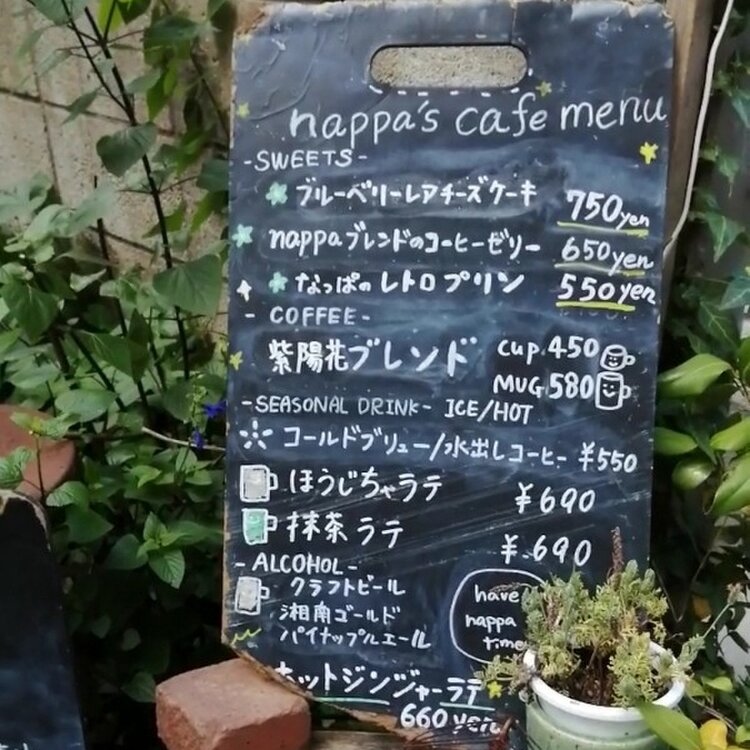 nappa's cafe menu
-SWEETS-
ブルーベリーレアチーズケーキ 750yen
nappaブレンドのコーヒーゼリー 650yen
なっぱのレトロプリン 550yen
- COFFEE -
紫陽花ブレンド cup 450
MUG 580
-SEASONAL DRINK- ICE/HOT
コールドブリュー/水出しコーヒー ¥550
ほうじちゃラテ ¥690
抹茶ラテ ¥690
-ALCOHOL-
クラフトビール
湘南ゴールド
パイナップルエール
have
nappa
time
ホットジンジャーラテ
660yen